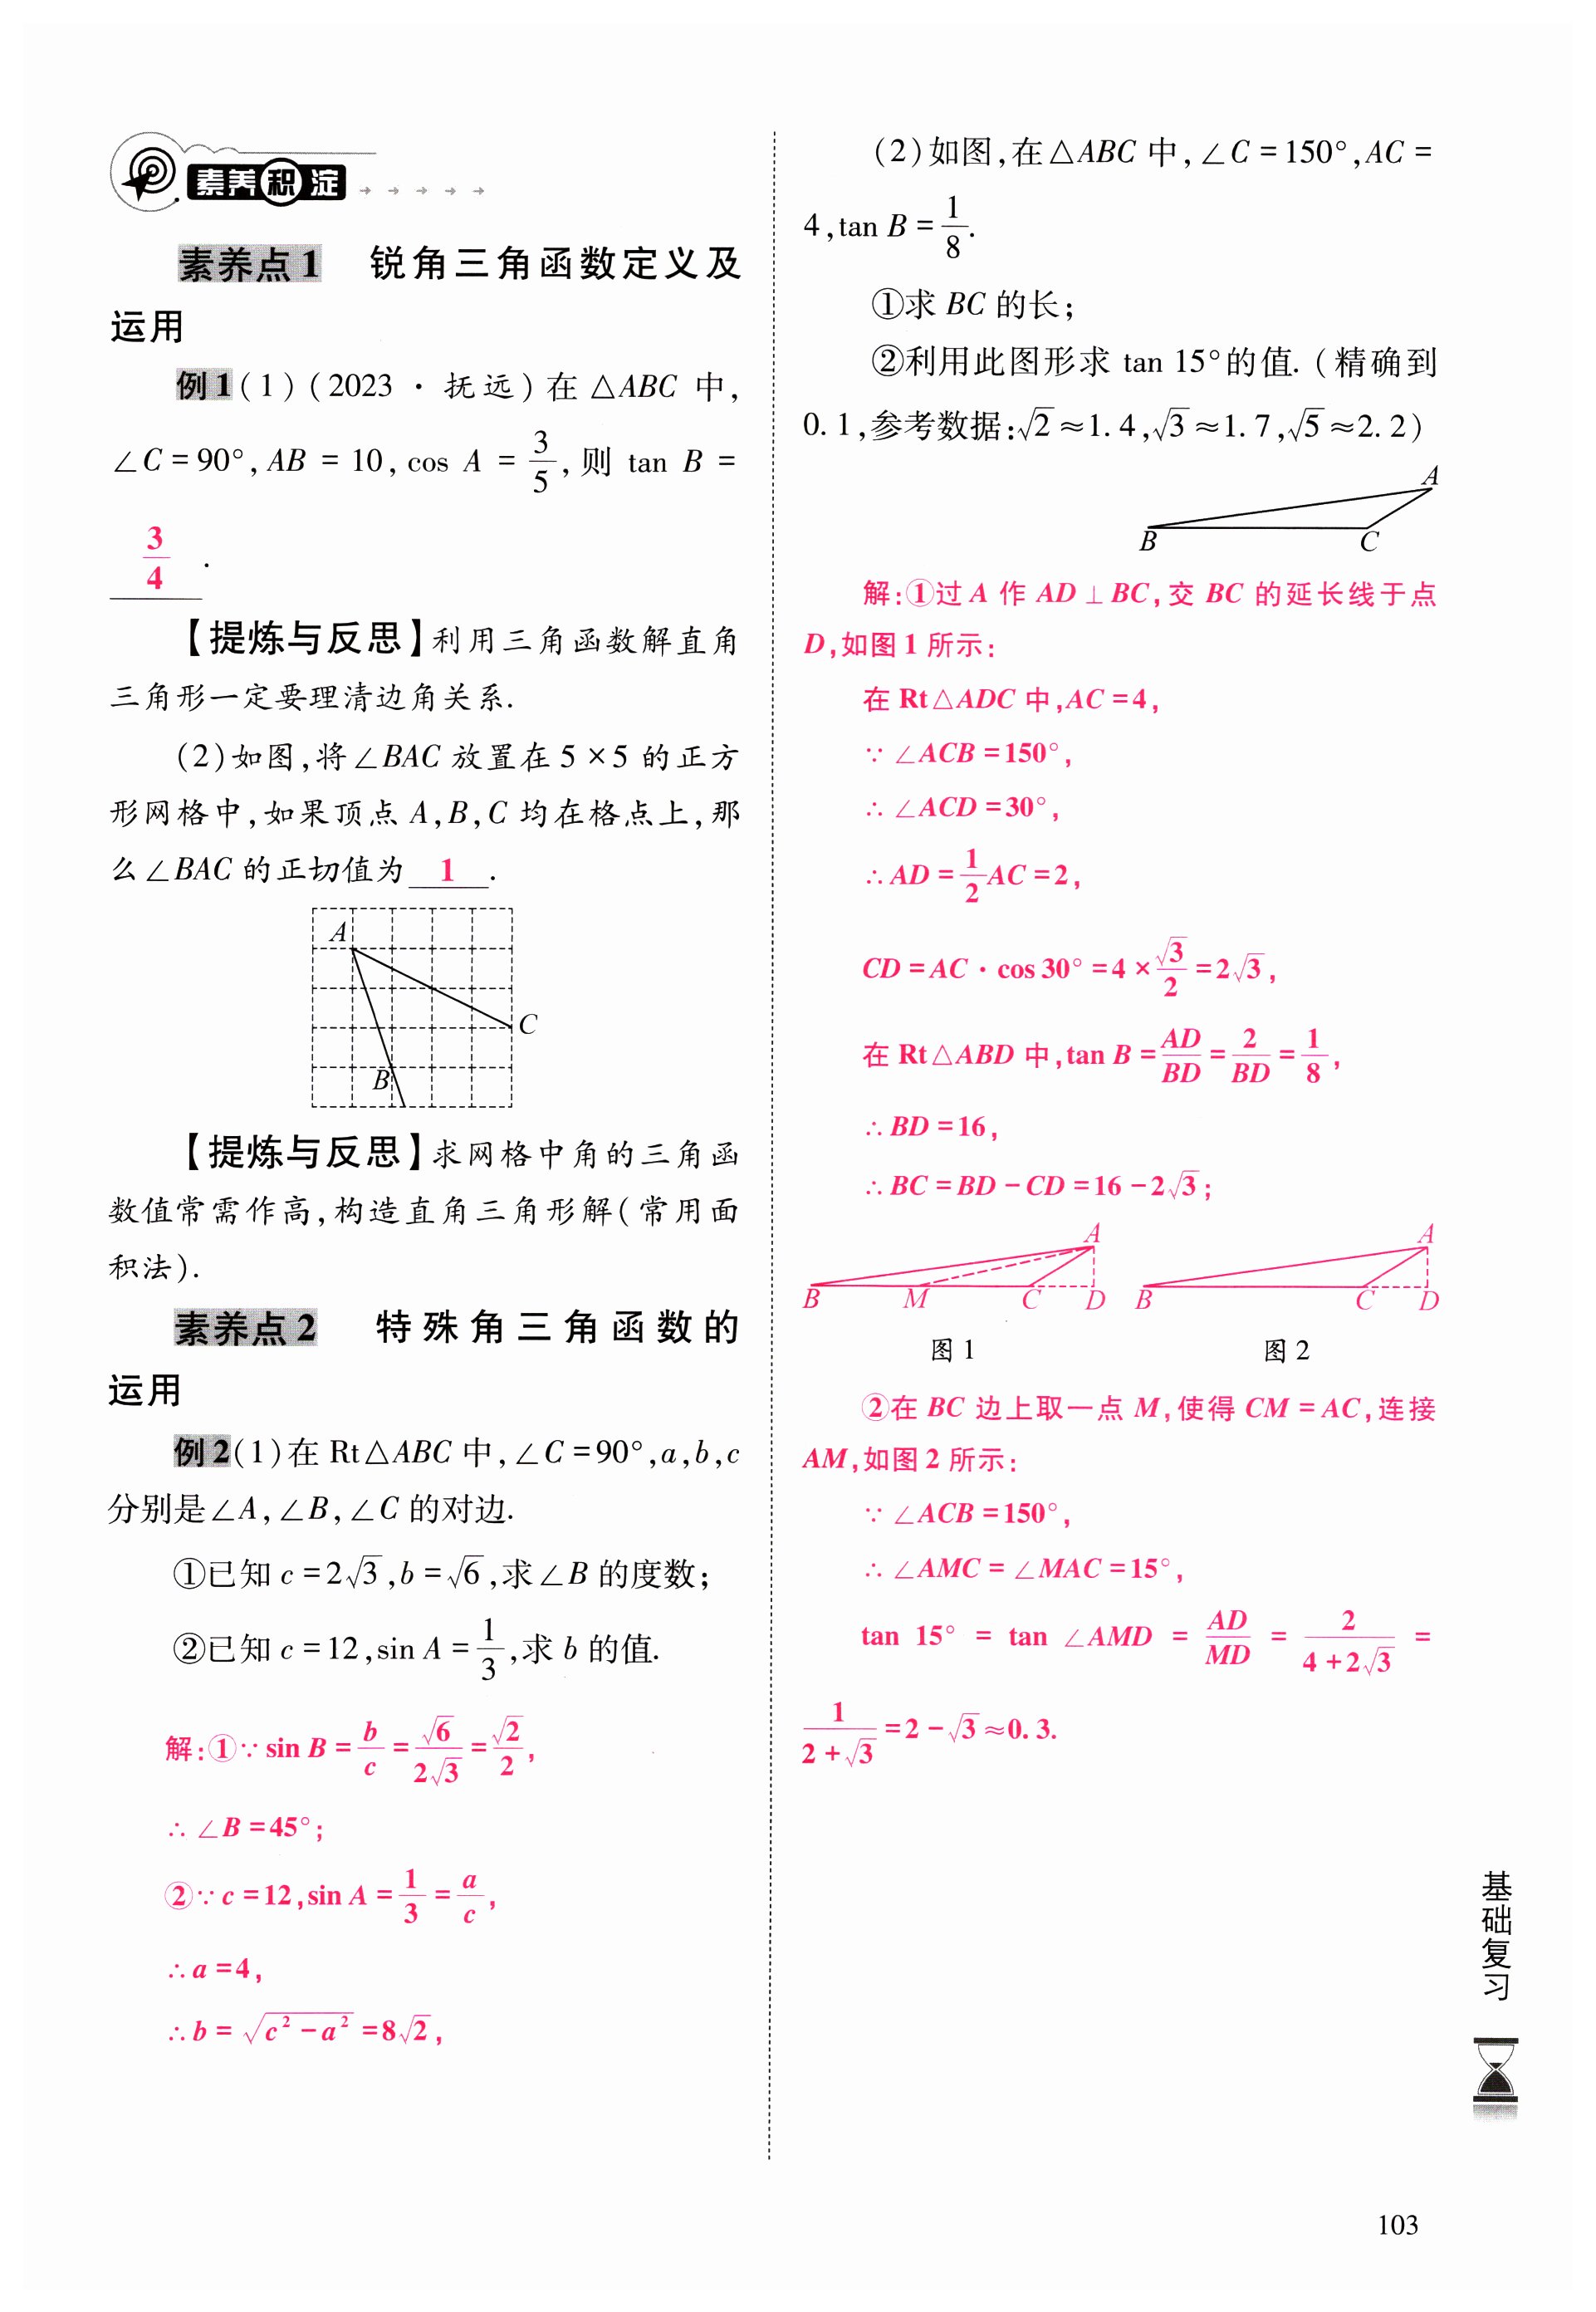 素养积淀
素养点1 锐角三角函数定义及
运用
例1(1)(2023·抚远)在△ABC中,
∠C=90°,AB=10,cos A=3/5,则 tan B=
3/4.
【提炼与反思】利用三角函数解直角
三角形一定要理清边角关系.
(2)如图,将∠BAC放置在5×5的正方
形网格中,如果顶点A,B,C均在格点上,那
么∠BAC的正切值为 1 .
A
C
B
【提炼与反思】求网格中角的三角函
数值常需作高,构造直角三角形解(常用面
积法).
素养点2 特殊角三角函数的
运用
例2(1)在Rt△ABC中,∠C=90°,a,b,c
分别是∠A,∠B,∠C的对边.
①已知c=2√3,b=√6,求∠B的度数;
②已知c=12,sin A=1/3,求b的值.
解:①∵sin B=b/c=√6/(2√3)=√2/2,
∴∠B=45°;
②∵c=12,sin A=1/3=a/c,
∴a=4,
∴b=√(c²-a²)=8√2,
(2)如图,在△ABC中,∠C=150°,AC=
4,tan B=1/8.
①求BC的长;
②利用此图形求tan 15°的值.(精确到
0.1,参考数据:√2≈1.4,√3≈1.7,√5≈2.2)
A
B C
解:①过A作AD⊥BC,交BC的延长线于点
D,如图1所示:
在Rt△ADC中,AC=4,
∵∠ACB=150°,
∴∠ACD=30°,
∴AD=1/2AC=2,
CD=AC·cos 30°=4×√3/2=2√3,
在Rt△ABD中,tan B=AD/BD=2/BD=1/8,
∴BD=16,
∴BC=BD-CD=16-2√3;
A A
B M C D B C D
图1 图2
②在BC边上取一点M,使得CM=AC,连接
AM,如图2所示:
∵∠ACB=150°,
∴∠AMC=∠MAC=15°,
tan 15°=tan∠AMD=AD/MD=2/(4+2√3)=
1/(2+√3)=2-√3≈0.3.
基础复习
103